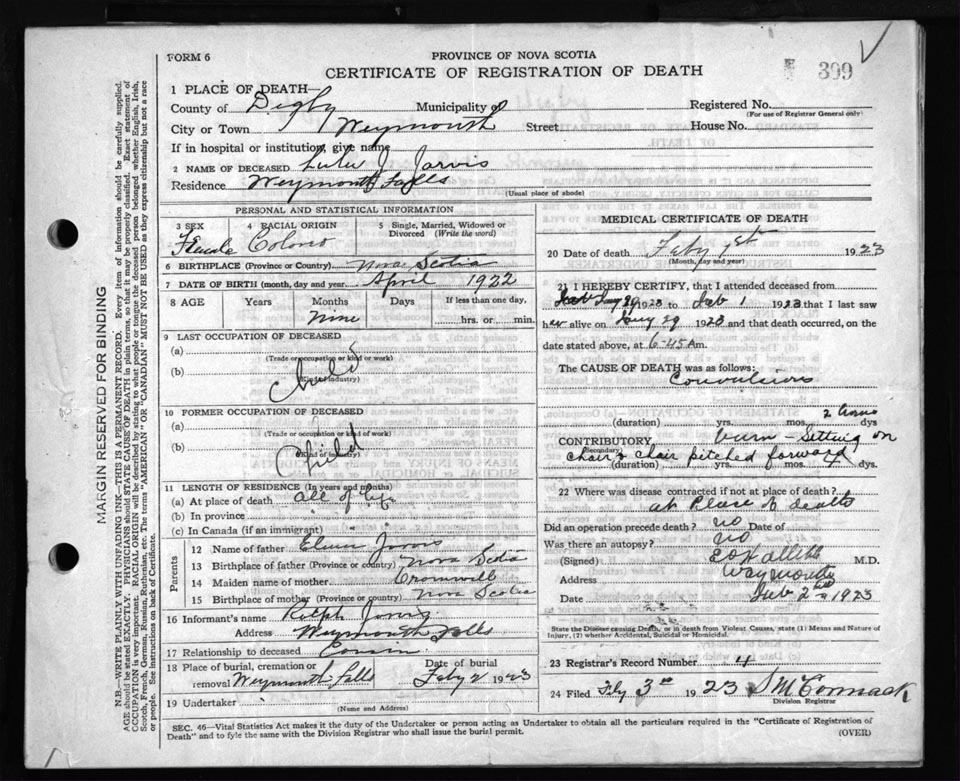 FORM 6
PROVINCE OF NOVA SCOTIA
CERTIFICATE OF REGISTRATION OF DEATH
399
1 PLACE OF DEATH—
County of Digby Municipality of
Registered No.
(For use of Registrar General only)
City or Town Weymouth Street: House No.
If in hospital or institution, give name
2 NAME OF DECEASED Lulu J. Jarvis
Residence Weymouth Falls
(Usual place of abode)
PERSONAL AND STATISTICAL INFORMATION
3 SEX 4 RACIAL ORIGIN 5 Single, Married, Widowed or Divorced (Write the word)
Female Colored
6 BIRTHPLACE (Province or Country) Nova Scotia
7 DATE OF BIRTH (month, day and year) April 1922
8 AGE Years Months Days If less than one day,
Nine hrs. or min.
9 LAST OCCUPATION OF DECEASED
(a)
(Trade or occupation or kind of work)
(b) Child
(Kind of industry)
10 FORMER OCCUPATION OF DECEASED
(a)
(Trade or occupation or kind of work)
(b) Child
(Kind of industry)
11 LENGTH OF RESIDENCE (In years and months)
(a) At place of death all of life
(b) In province
(c) In Canada (if an immigrant)
Parents
12 Name of father Jarvis
13 Birthplace of father (Province or country) Nova Scotia
14 Maiden name of mother Cromwell
15 Birthplace of mother (Province or Country) Nova Scotia
16 Informant's name Ralph Jarvis
Address Weymouth Falls
17 Relationship to deceased Cousin
18 Place of burial, cremation or removal Weymouth Falls Date of burial Feby 2 1923
19 Undertaker
(Name and Address)
MEDICAL CERTIFICATE OF DEATH
20 Date of death Feby 1st 1923
(Month, day and year)
21 I HEREBY CERTIFY, that I attended deceased from
Jany 29 1923 to Feb 1 1923 that I last saw
her alive on Jany 29 1923 and that death occurred, on
the date stated above, at 6-45 Am.
The CAUSE OF DEATH was as follows:
Convulsions
2 hours
(duration) yrs. mos. dys.
CONTRIBUTORY burn - Sitting on
(Secondary) chair & chair pitched forward
(duration) yrs. mos. dys
22 Where was disease contracted if not at place of death?
at Place of death
Did an operation precede death? no Date of
Was there an autopsy? no
(Signed) M.D.
Address Weymouth
Date Feb 2nd 1923
State the Disease causing Death, or in death from Violent Causes, state (1) Means and Nature of Injury, (2) whether Accidental, Suicidal or Homicidal.
23 Registrar's Record Number 4
24 Filed Feby 3rd 1923 S McCormack
Division Registrar
SEC. 46—Vital Statistics Act makes it the duty of the Undertaker or person acting as Undertaker to obtain all the particulars required in the "Certificate of Registration of
Death" and to fyle the same with the Division Registrar who shall issue the burial permit.
(OVER)
MARGIN RESERVED FOR BINDING
N.B.—WRITE PLAINLY WITH UNFADING INK—THIS IS A PERMANENT RECORD. Every item of information should be carefully supplied.
AGE should be stated EXACTLY. PHYSICIANS should STATE CAUSE OF DEATH in plain terms, so that it may be properly classified. Exact statement of
OCCUPATION is very important. RACIAL ORIGIN will be described by stating to what people or tongue the deceased person belonged whether English, Irish,
Scotch, French, German, Russian, Ruthenian, etc. The terms "AMERICAN" or "CANADIAN" MUST NOT BE USED as they express citizenship but not a race
or people. See instructions on back of Certificate.